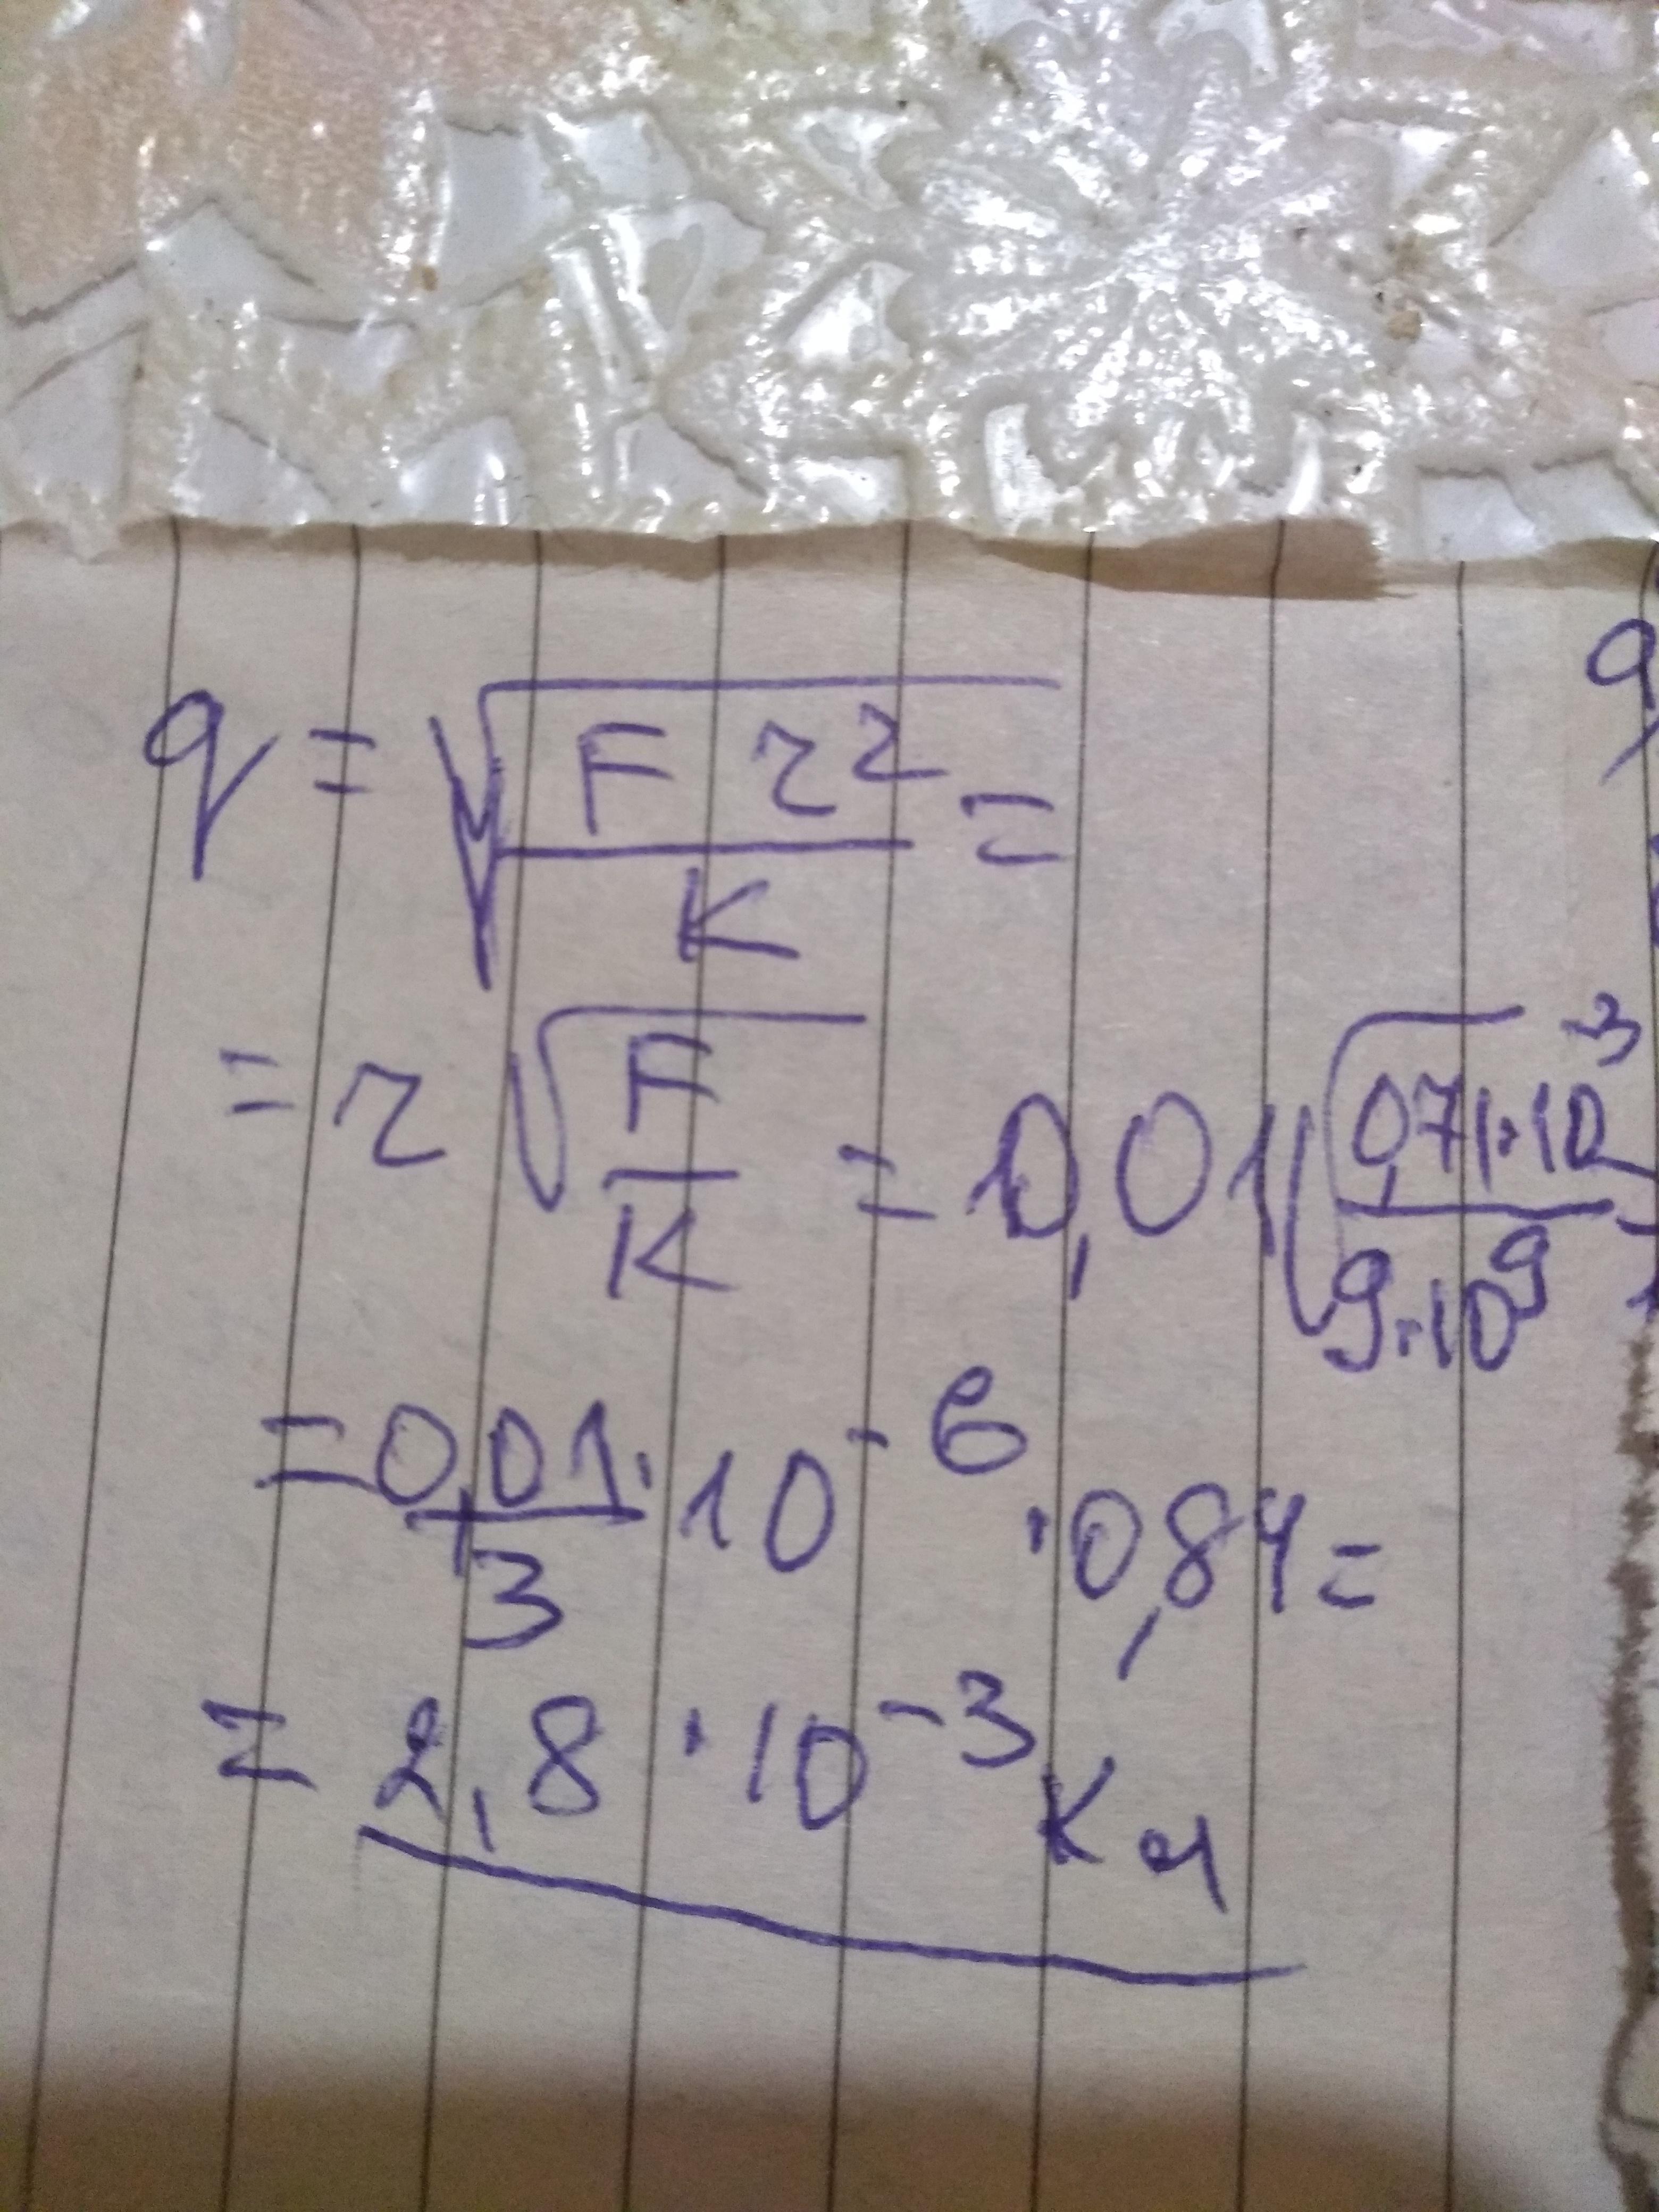 q = √(F r² / K) =
= r √(F / K) = 0,01 √(0,71·10⁻³ / 9·10⁹)
= 0,01/3 · 10⁻⁶ · 0,84 =
= 2,8 · 10⁻³ Кл